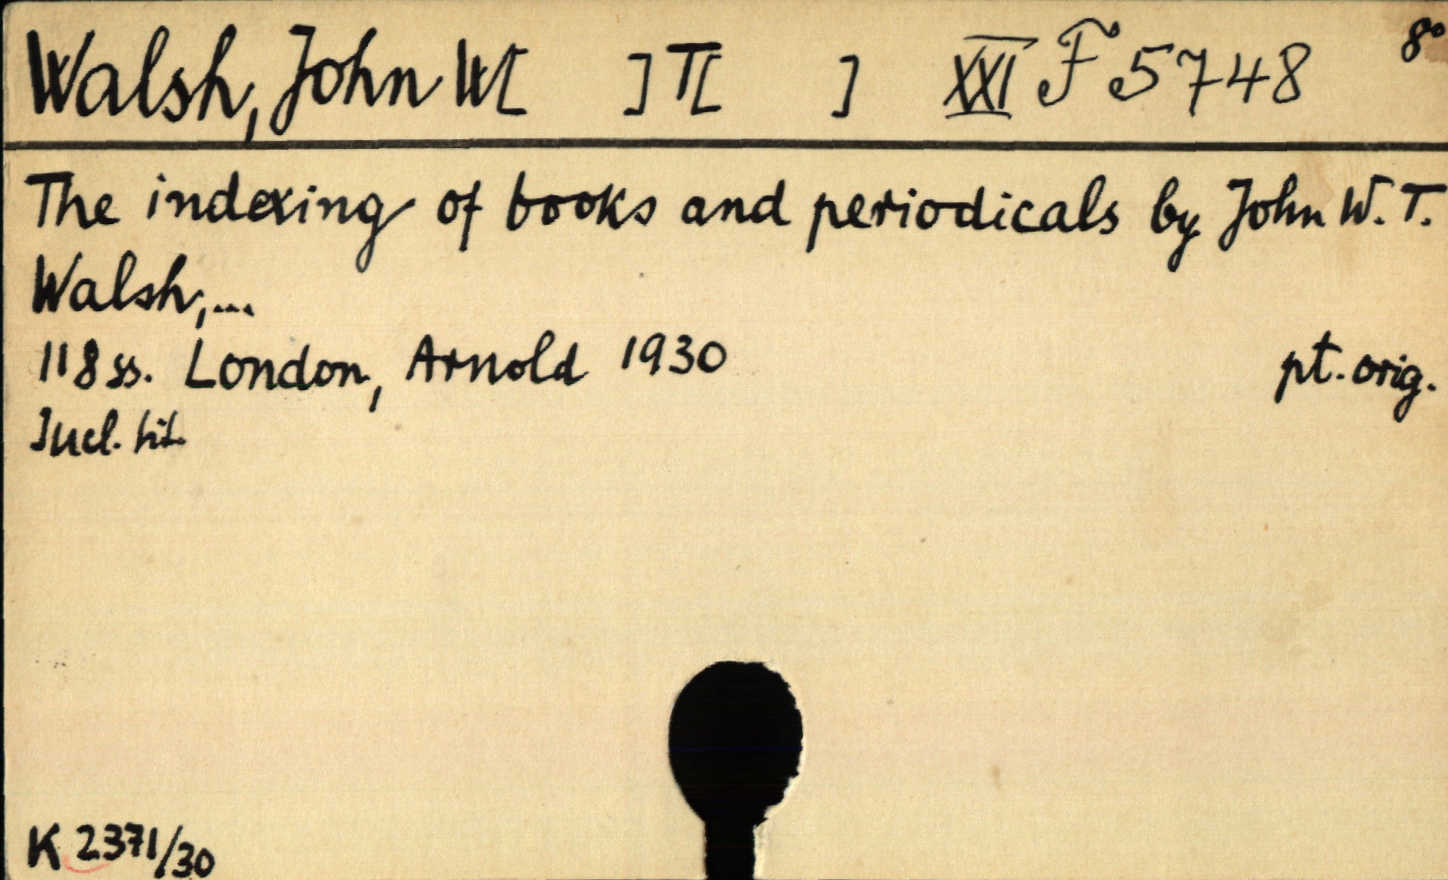 Walsh, John W[ ] T[ ] XXI F 5748 8°
The indexing of books and periodicals by John W. T.
Walsh,...
118 ss. London, Arnold 1930 pt. orig.
Incl. tit.
K 2371/30